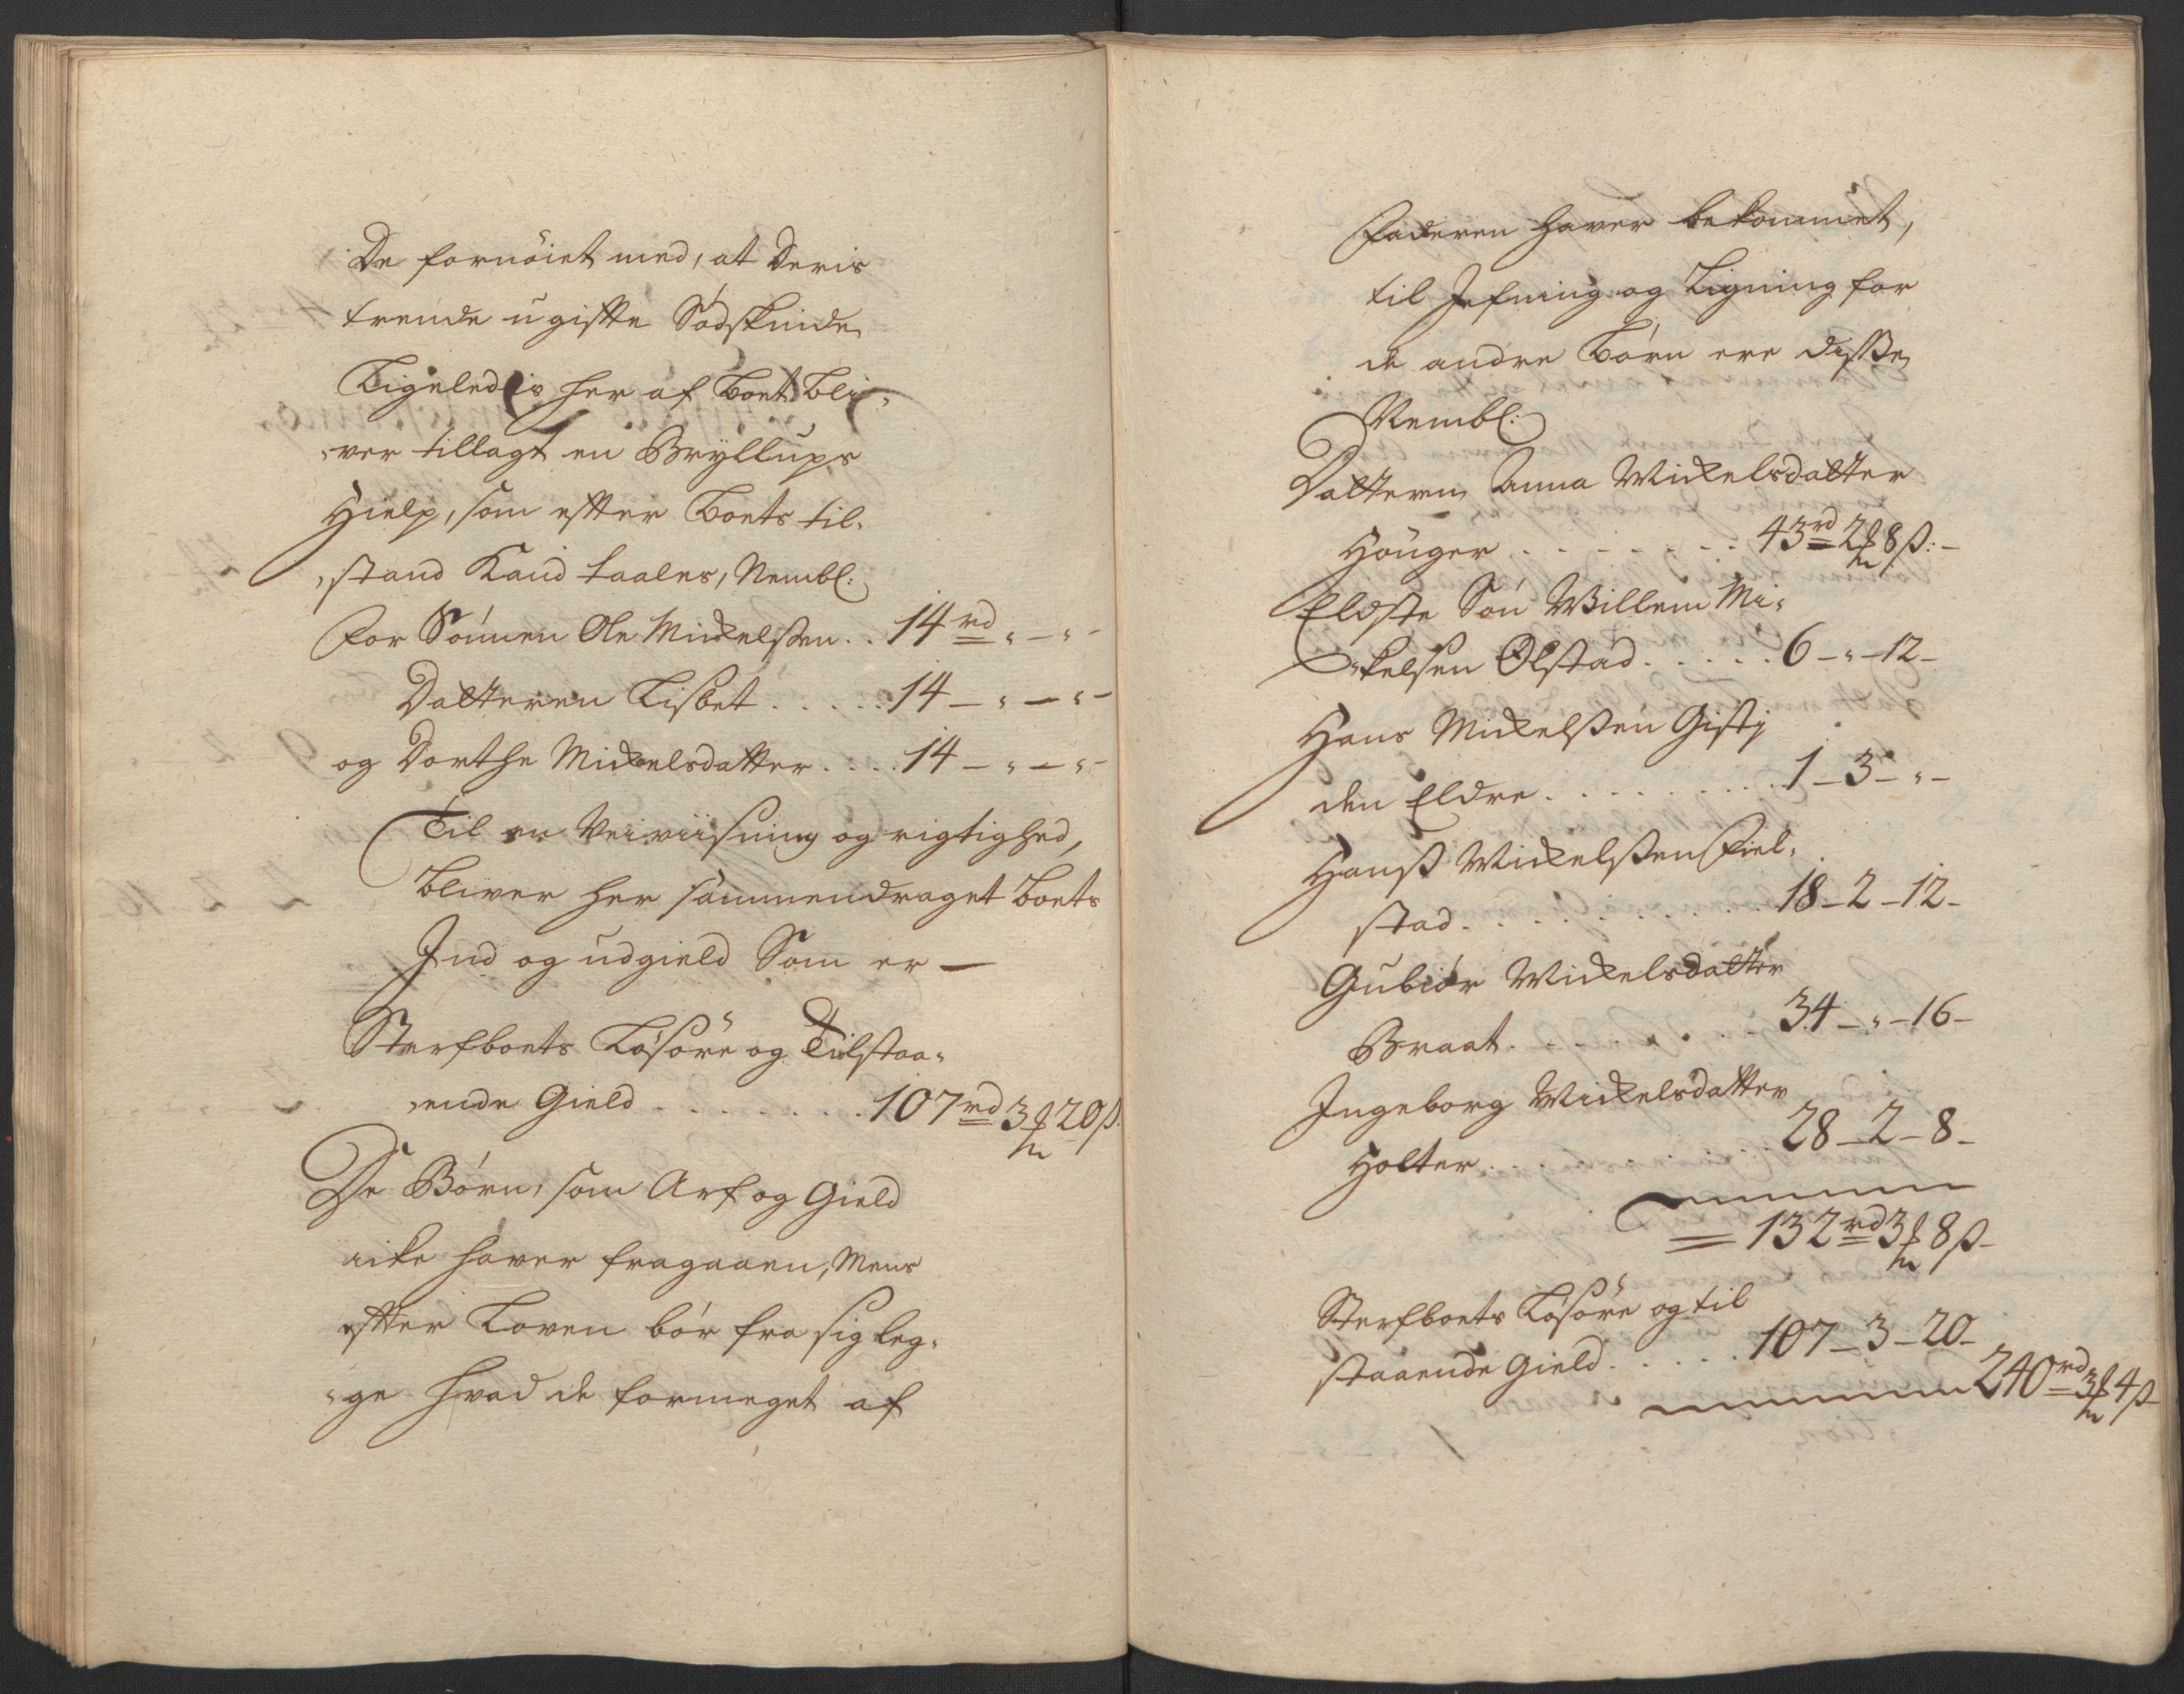 De fornöiet med, at Deris
trende ugifte Södskinde
Ligeledis her af Boet bli-
-ver tillagt en Bryllups
Hielp, som efter Boets til-
-stand Kand taales, Nembl:
For Sönnen Ole Mickelssen .. 14 rd " - " -
Datteren Lisbet ..... 14 - " - " -
og Dorthe Mickelsdatter .... 14 - " - " -
Til en Veiviisning og rigtighed,
bliver her sammendraget Boets
Ind og udgield Som er —
Sterfboets Lösöre og Tilstaa-
-ende Gield ........ 107 rd 3 20 ß
De Börn, som Arf og Gield
icke haver fragaaen, Mens
efter Loven bör fra sig leg-
-ge hvad de formeget af
Faderen haver bekommet,
til Jefning og Ligning for
de andre Börn ere disse
Nembl:
Datteren Anna Mickelsdatter
Houger ........ 43 rd 2 8 ß: -
Eldste Sön Willem Mi-
-ckelsen Olstad ..... 6 - " - 12 -
Hans Mickelssen
den Eldre ......... 1 - 3 - " -
Hanss Mickelssen Fiel-
stad ......... 18 - 2 - 12 -
Gubiör Mickelsdatter
Braat ....... 34 - " - 16 -
Ingeborg Mickelsdatter
Holter ........ 28 - 2 - 8 -
132 rd 3 8 ß -
Sterfboets Lösöre og til
staaende Gield ..... 107 - 3 - 20 -
240 rd 3 4 ß -